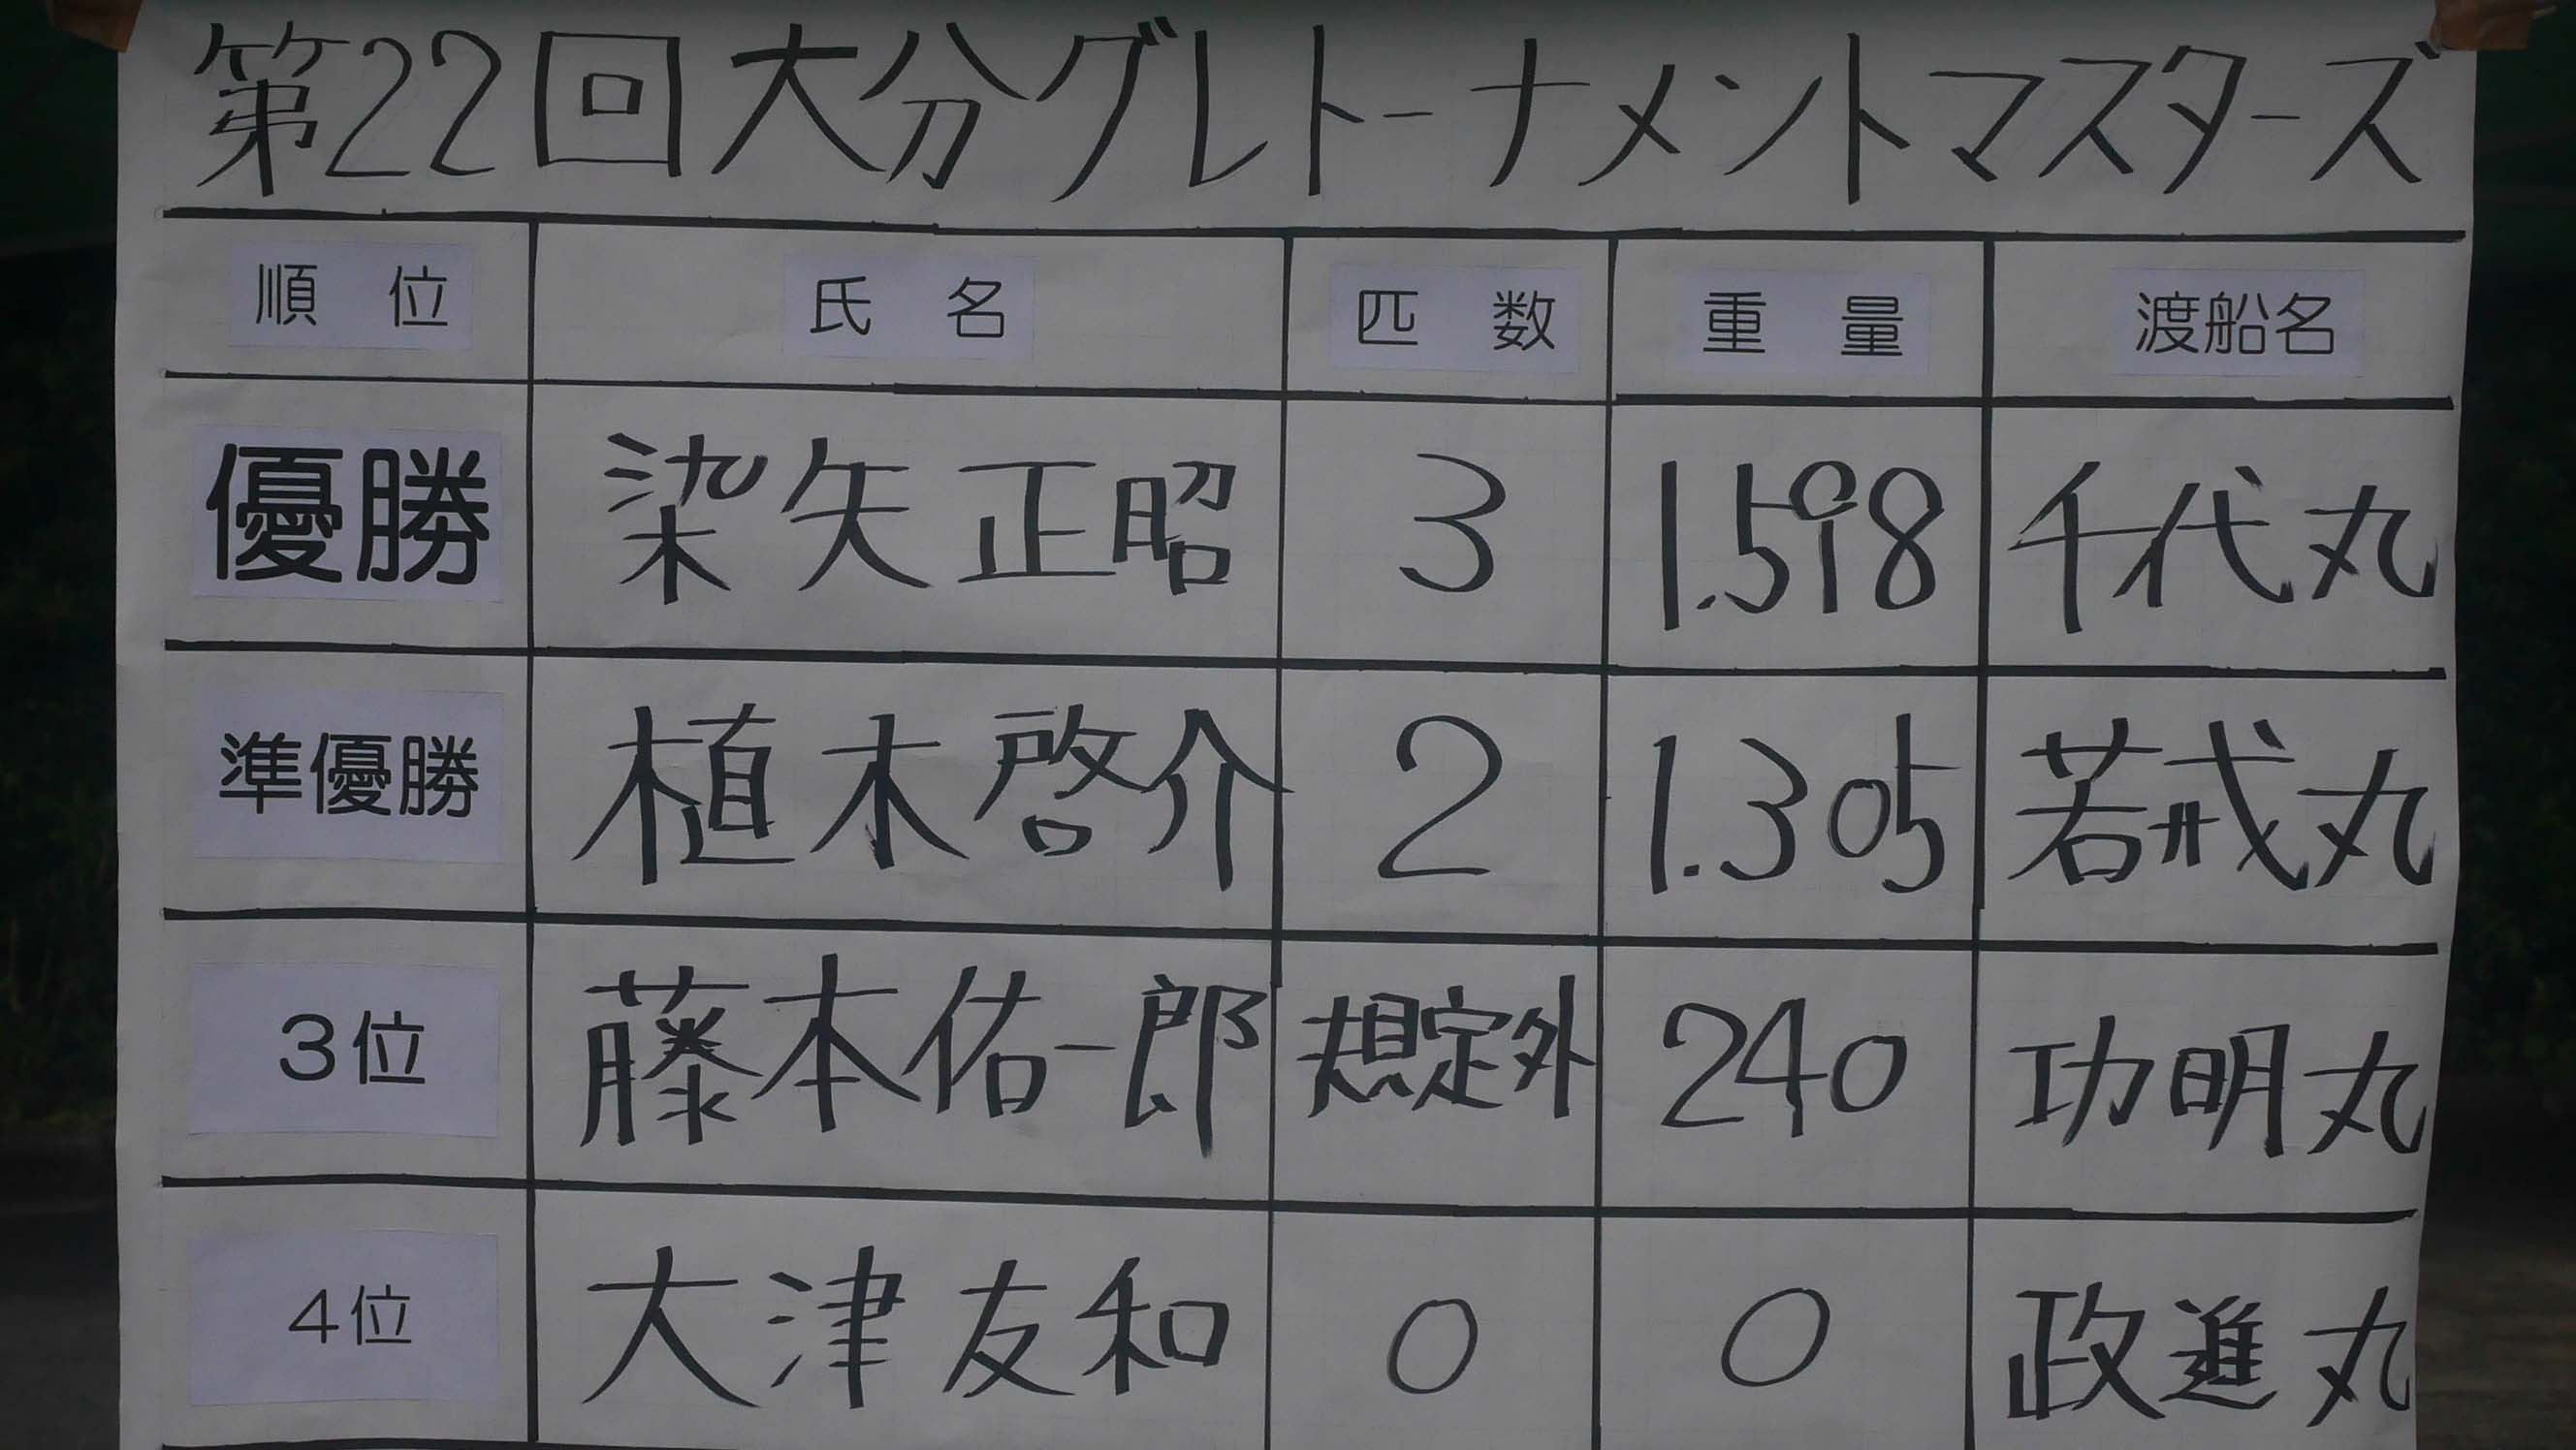 第22回大分グレトーナメントマスターズ
順位 氏名 匹数 重量 渡船名
優勝 染矢正昭 3 1.598 千代丸
準優勝 植木啓介 2 1.305 若戎丸
3位 藤本佑一郎 規定外 240 功明丸
4位 大津友和 0 0 政進丸